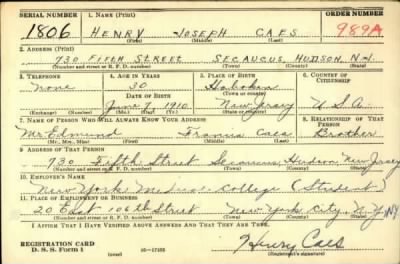 SERIAL NUMBER 1. NAME (Print) ORDER NUMBER
1806 HENRY JOSEPH CAES 989A
(First) (Middle) (Last)
2. ADDRESS (Print)
730 FIFTH STREET SECAUCUS HUDSON N.J.
(Number and street or R. F. D. number) (Town) (County) (State)
3. TELEPHONE 4. AGE IN YEARS 5. PLACE OF BIRTH 6. COUNTRY OF CITIZENSHIP
None 30 Hoboken
DATE OF BIRTH (Town or county)
June 7, 1910 New Jersey U.S.A.
(Exchange) (Number) (Mo.) (Day) (Yr.) (State or country)
7. NAME OF PERSON WHO WILL ALWAYS KNOW YOUR ADDRESS 8. RELATIONSHIP OF THAT PERSON
Mr. Edmund Francis Caes Brother
(Mr., Mrs., Miss) (First) (Middle) (Last)
9. ADDRESS OF THAT PERSON
730 Fifth Street Secaucus, Hudson, New Jersey
(Number and street or R. F. D. number) (Town) (County) (State)
10. EMPLOYER'S NAME
New York Medical College (Student)
11. PLACE OF EMPLOYMENT OR BUSINESS
20 East 106th Street New York City, N.Y. NY
(Number and street or R. F. D. number) (Town) (County) (State)
I AFFIRM THAT I HAVE VERIFIED ABOVE ANSWERS AND THAT THEY ARE TRUE.
REGISTRATION CARD
D. S. S. FORM 1 (over) Henry Caes
(Registrant's signature)